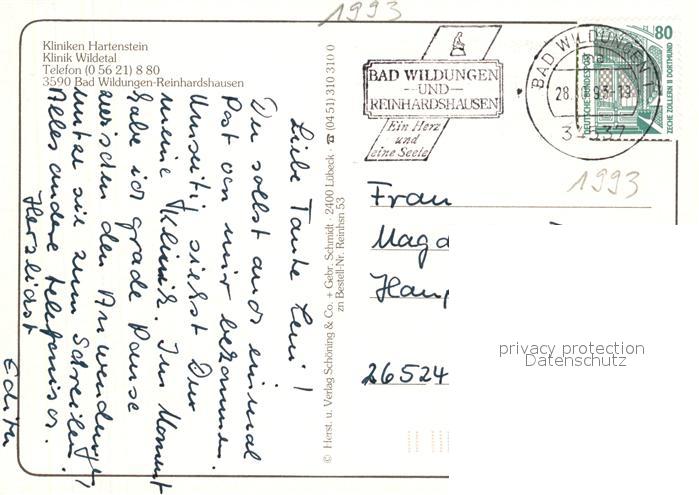 1993
Kliniken Hartenstein
Klinik Wildetal
Telefon (0 56 21) 8 80
3590 Bad Wildungen-Reinhardshausen
Liebe Tante Leni!
Du sollst auch einmal
Post von mir bekommen.
Umseitig siehst Du
meine Klinik. Im Moment
habe ich grade Pause
zwischen den Anwendungen,
unter sie zum Schreiben.
Alles andere telefonisch.
Herzlichst
Edith
© Herst. u. Verlag Schöning & Co. + Gebr. Schmidt · 2400 Lübeck · ☎ (04 51) 310 310 0
zn Bestell-Nr. Reinhsn 53
BAD WILDUNGEN
-UND-
REINHARDSHAUSEN
Ein Herz
und
eine Seele
BAD WILDUNGEN 1
34537
80
DEUTSCHE BUNDESPOST
ZECHE ZOLLERN II DORTMUND
1993
Frau
Magd
Hamp
26524
privacy protection
Datenschutz